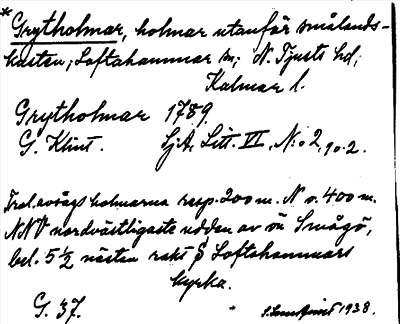 * Grytholmar, holmar utanför smålands-
kusten; Loftahammar sn; N. Tjusts hd;
Kalmar l.
Grytholmar 1789.
G. Klint. SjA. Litt. VI, N:o 2, 90.2.
Trol. avses holmarna resp. 200 m. N o. 400 m.
NNV nordvästligaste udden av ön Smågö,
bel. 5 ½ nästan rakt S Loftahammars
kyrka.
G. 37. 1938.